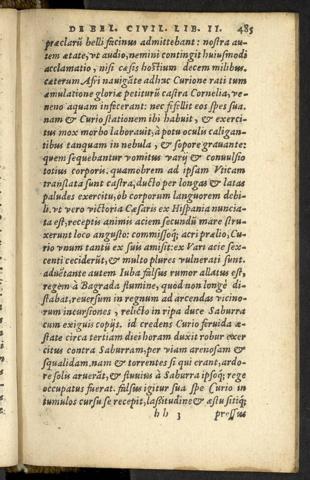 DE BEL. CIVIL. LIB. II. 485
præclarū belli facinus admittebant: nostra au-
tem ætate, ut audio, nemini contingit huiusmodi
acclamatio, nisi cæsis hostium decem milibus.
cæterum Afri nauigāte adhuc Curione rati tum
æmulatione gloriæ petiturū castra Cornelia, ue-
neno aquam infecerant: nec fefellit eos spes sua.
nam & Curio stationem ibi habuit, & exerci-
tus mox morbo laborauit, à potu oculis caligan-
tibus tanquam in nebula, & sopore grauante:
quem sequebantur uomitus uarij & conuulsio
totius corporis. quamobrem ad ipsam Vticam
translata sunt castra, ducto per longas & latas
paludes exercitu, ob corporum languorem debi-
li. ut uero uictoria Cæsaris ex Hispania nuncia-
ta est, receptis animis aciem secundū mare stru-
xerunt loco angusto: commissoq; acri prælio, Cu-
rio unum tantū ex suis amisit: ex Vari acie sex-
centi ceciderūt, & multo plures uulnerati sunt.
aduētante autem Iuba falsus rumor allatus est,
regem à Bagrada flumine, quod non longè di-
stabat, reuersum in regnum ad arcendas uicino-
rum incursiones, relicto in ripa duce Saburra
cum exiguis copijs. id credens Curio feruida æ-
state circa tertiam diei horam duxit robur exer
citus contra Saburram, per uiam arenosam &
squalidam. nam & torrentes si qui erant, ardo-
re solis aruerāt, & fluuius à Saburra ipsoq; rege
occupatus fuerat. falsus igitur sua spe Curio in
tumulos cursu se recepit, lassitudine & æstu sitiq;
hh 3 pressus